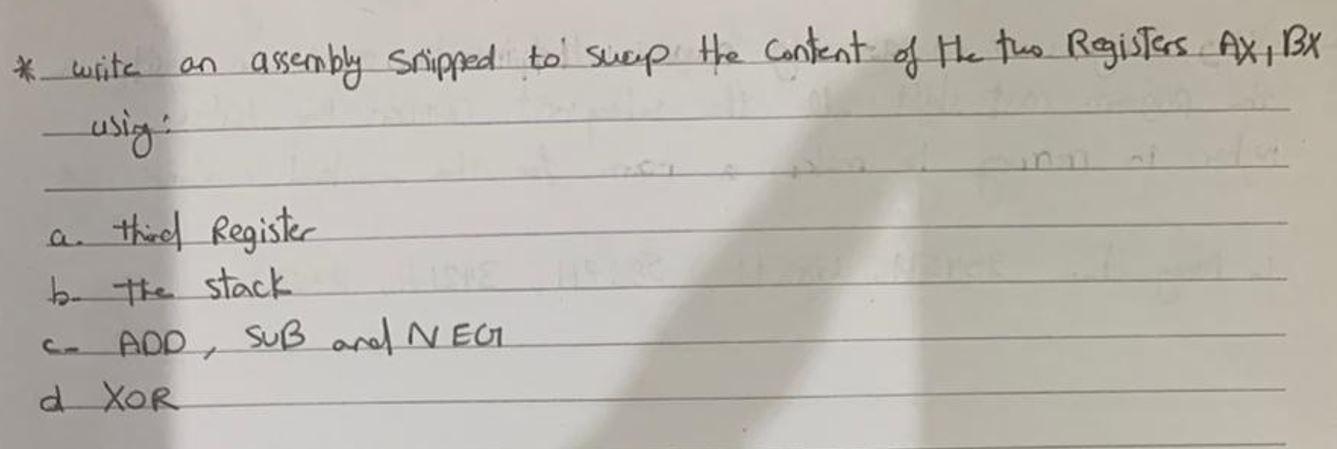 * write an assembly snipped to swap the Content of the two Registers AX, BX
usig:
a. third Register
b- the stack
c- ADD, SUB and NEG
d XOR